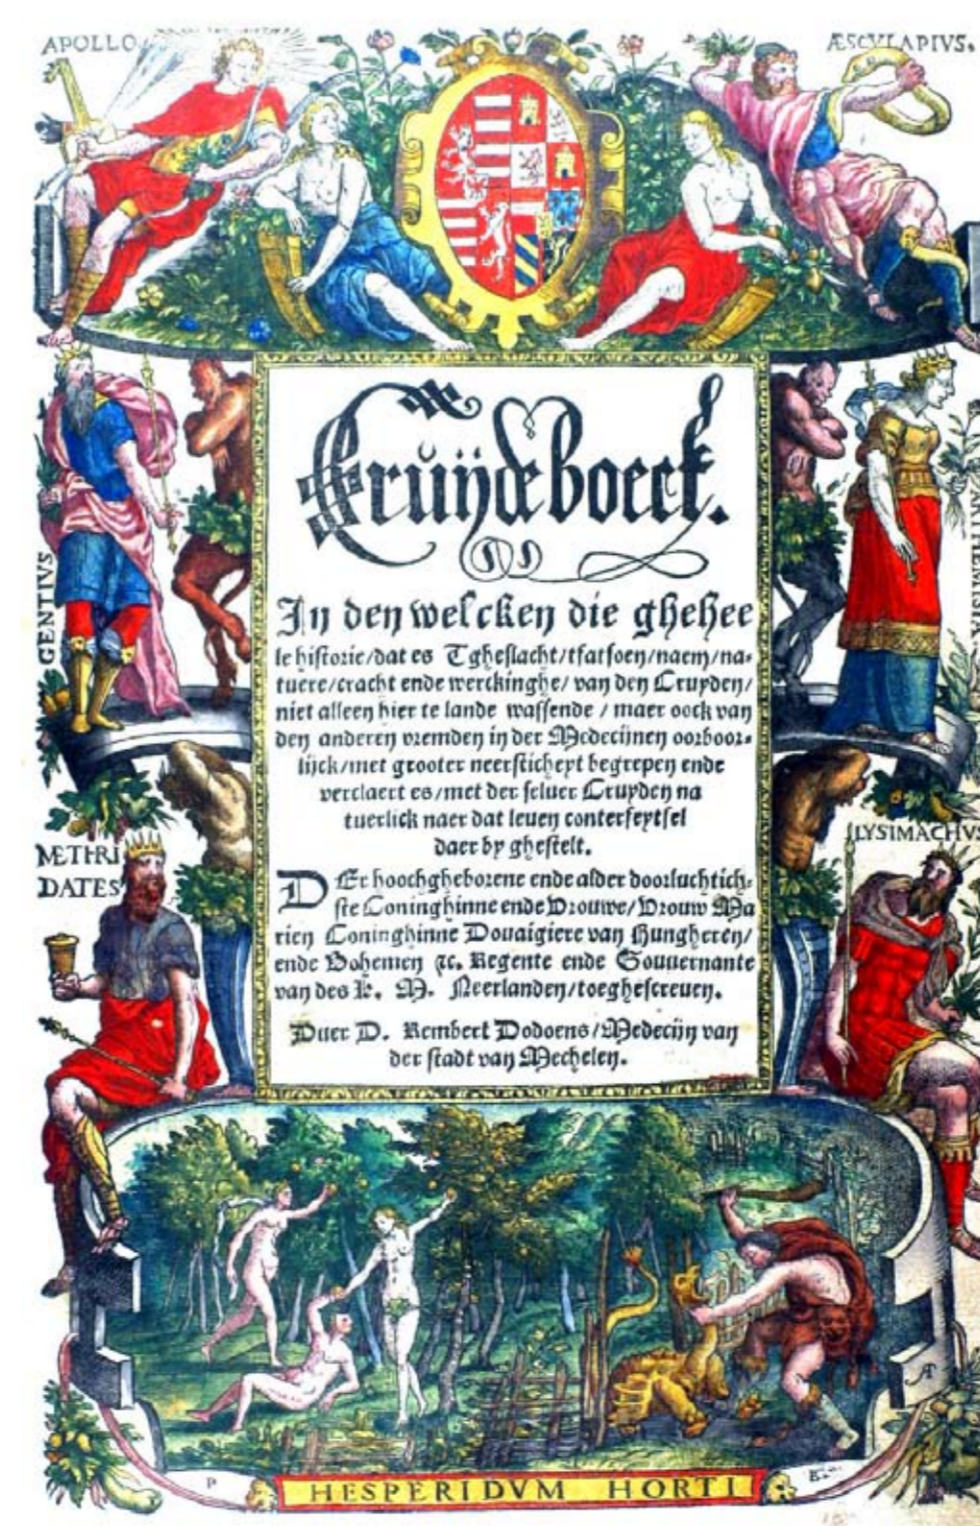 APOLLO
ÆSCVLAPIVS.
Cruÿdeboeck.
In den welcken die gheheele
le historie/dat es Tgheslacht/tfatsoen/naem/na-
tuere/cracht ende werckinghe/ van den Cruyden/
niet alleen hier te lande wassende / maer oock van
den anderen vremden in der Medecijnen oorboor-
lijck/met grooter neersticheyt begrepen ende
verclaert es/met der seluer Cruyden na
tuerlick naer dat leuen conterfeytsel
daer by ghestelt.
DEr hoochgheborene ende alder doorluchtich-
ste Coninghinne ende Vrouwe/Vrouw Ma
rien Coninghinne Douaigiere van Hungheren/
ende Bohemen ꝛc. Regente ende Gouuernante
van des K. M. Neerlanden/toeghescreuen.
Duer D. Rembert Dodoens/Medecijn van
der stadt van Mechelen.
GENTIVS
METHRI
DATES
LYSIMACHVS
P
B
HESPERIDVM HORTI